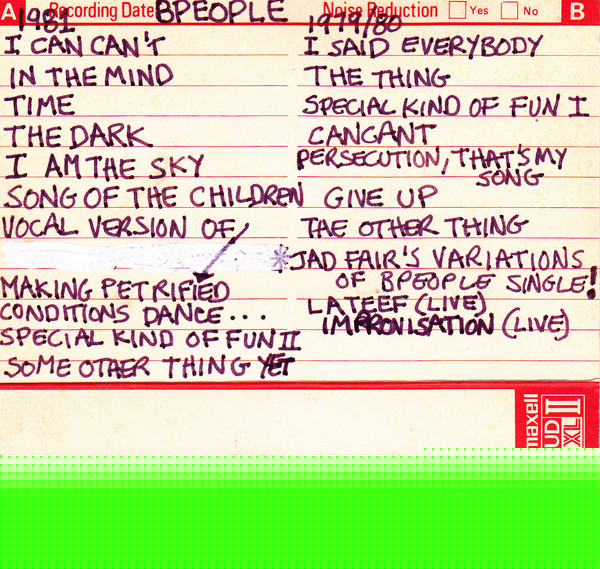 A Recording Date BPEOPLE Noise Reduction Yes No B
1981
I CAN CAN'T
IN THE MIND
TIME
THE DARK
I AM THE SKY
SONG OF THE CHILDREN
VOCAL VERSION OF
MAKING PETRIFIED
CONDITIONS DANCE...
SPECIAL KIND OF FUN II
SOME OTHER THING YET
1979/80
I SAID EVERYBODY
THE THING
SPECIAL KIND OF FUN I
CANCANT
PERSECUTION, THAT'S MY
SONG
GIVE UP
THE OTHER THING
*JAD FAIR'S VARIATIONS
OF BPEOPLE SINGLE!
LATEEF (LIVE)
IMPROVISATION (LIVE)
maxell
UD
XL II